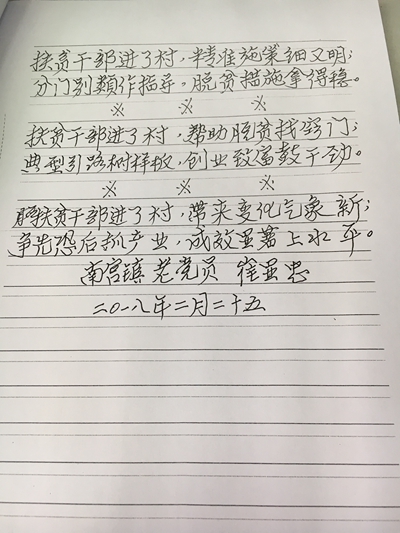 扶贫干部进了村，精准施策细又明；
分门别類作指导，脱贫措施拿得稳。
※ ※ ※
扶贫干部进了村，帮助脱贫找窍门；
典型引路树样板，创业致富鼓干劲。
※ ※ ※
扶贫干部进了村，带来变化气象新；
争先恐后抓产业，成效显著上水平。
南宫镇老党员 崔显忠
二〇一八年二月二十五